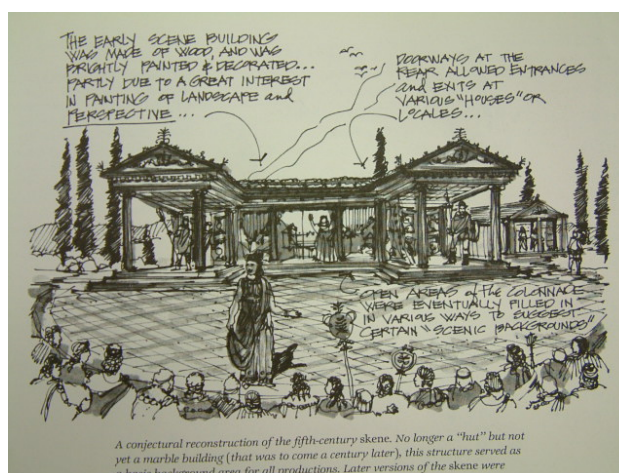 THE EARLY SCENE BUILDING
WAS MADE OF WOOD, AND WAS
BRIGHTLY PAINTED & DECORATED...
PARTLY DUE TO A GREAT INTEREST
IN PAINTING OF LANDSCAPE and
PERSPECTIVE...
DOORWAYS AT THE
REAR ALLOWED ENTRANCES
and EXITS AT
VARIOUS "HOUSES" OR
LOCALES...
OPEN AREAS of the COLONNADE
WERE EVENTUALLY FILLED IN
IN VARIOUS WAYS TO SUGGEST
CERTAIN "SCENIC BACKGROUNDS"
A conjectural reconstruction of the fifth-century skene. No longer a "hut" but not
yet a marble building (that was to come a century later), this structure served as
a basic background area for all productions. Later versions of the skene were